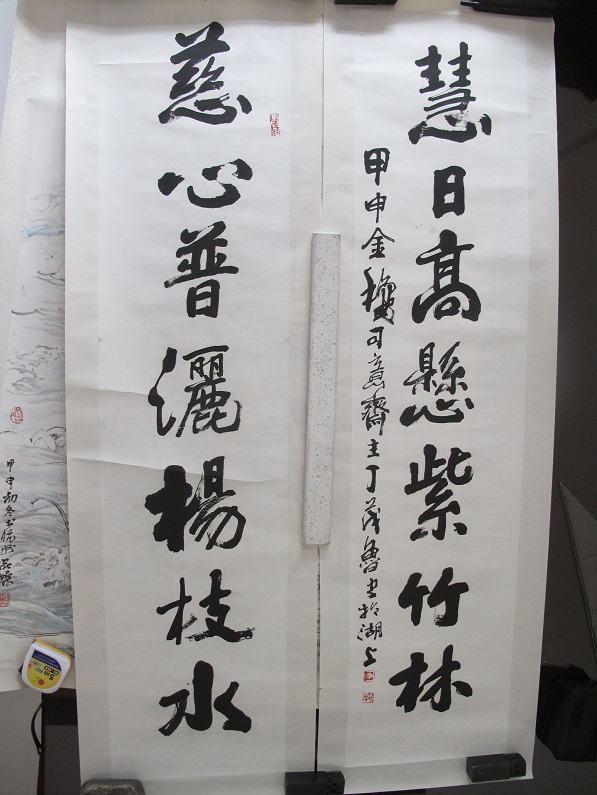 慧日高懸紫竹林
甲申金穐可意齋主丁茂魯書於湖上
慈心普灑楊枝水
甲申初冬